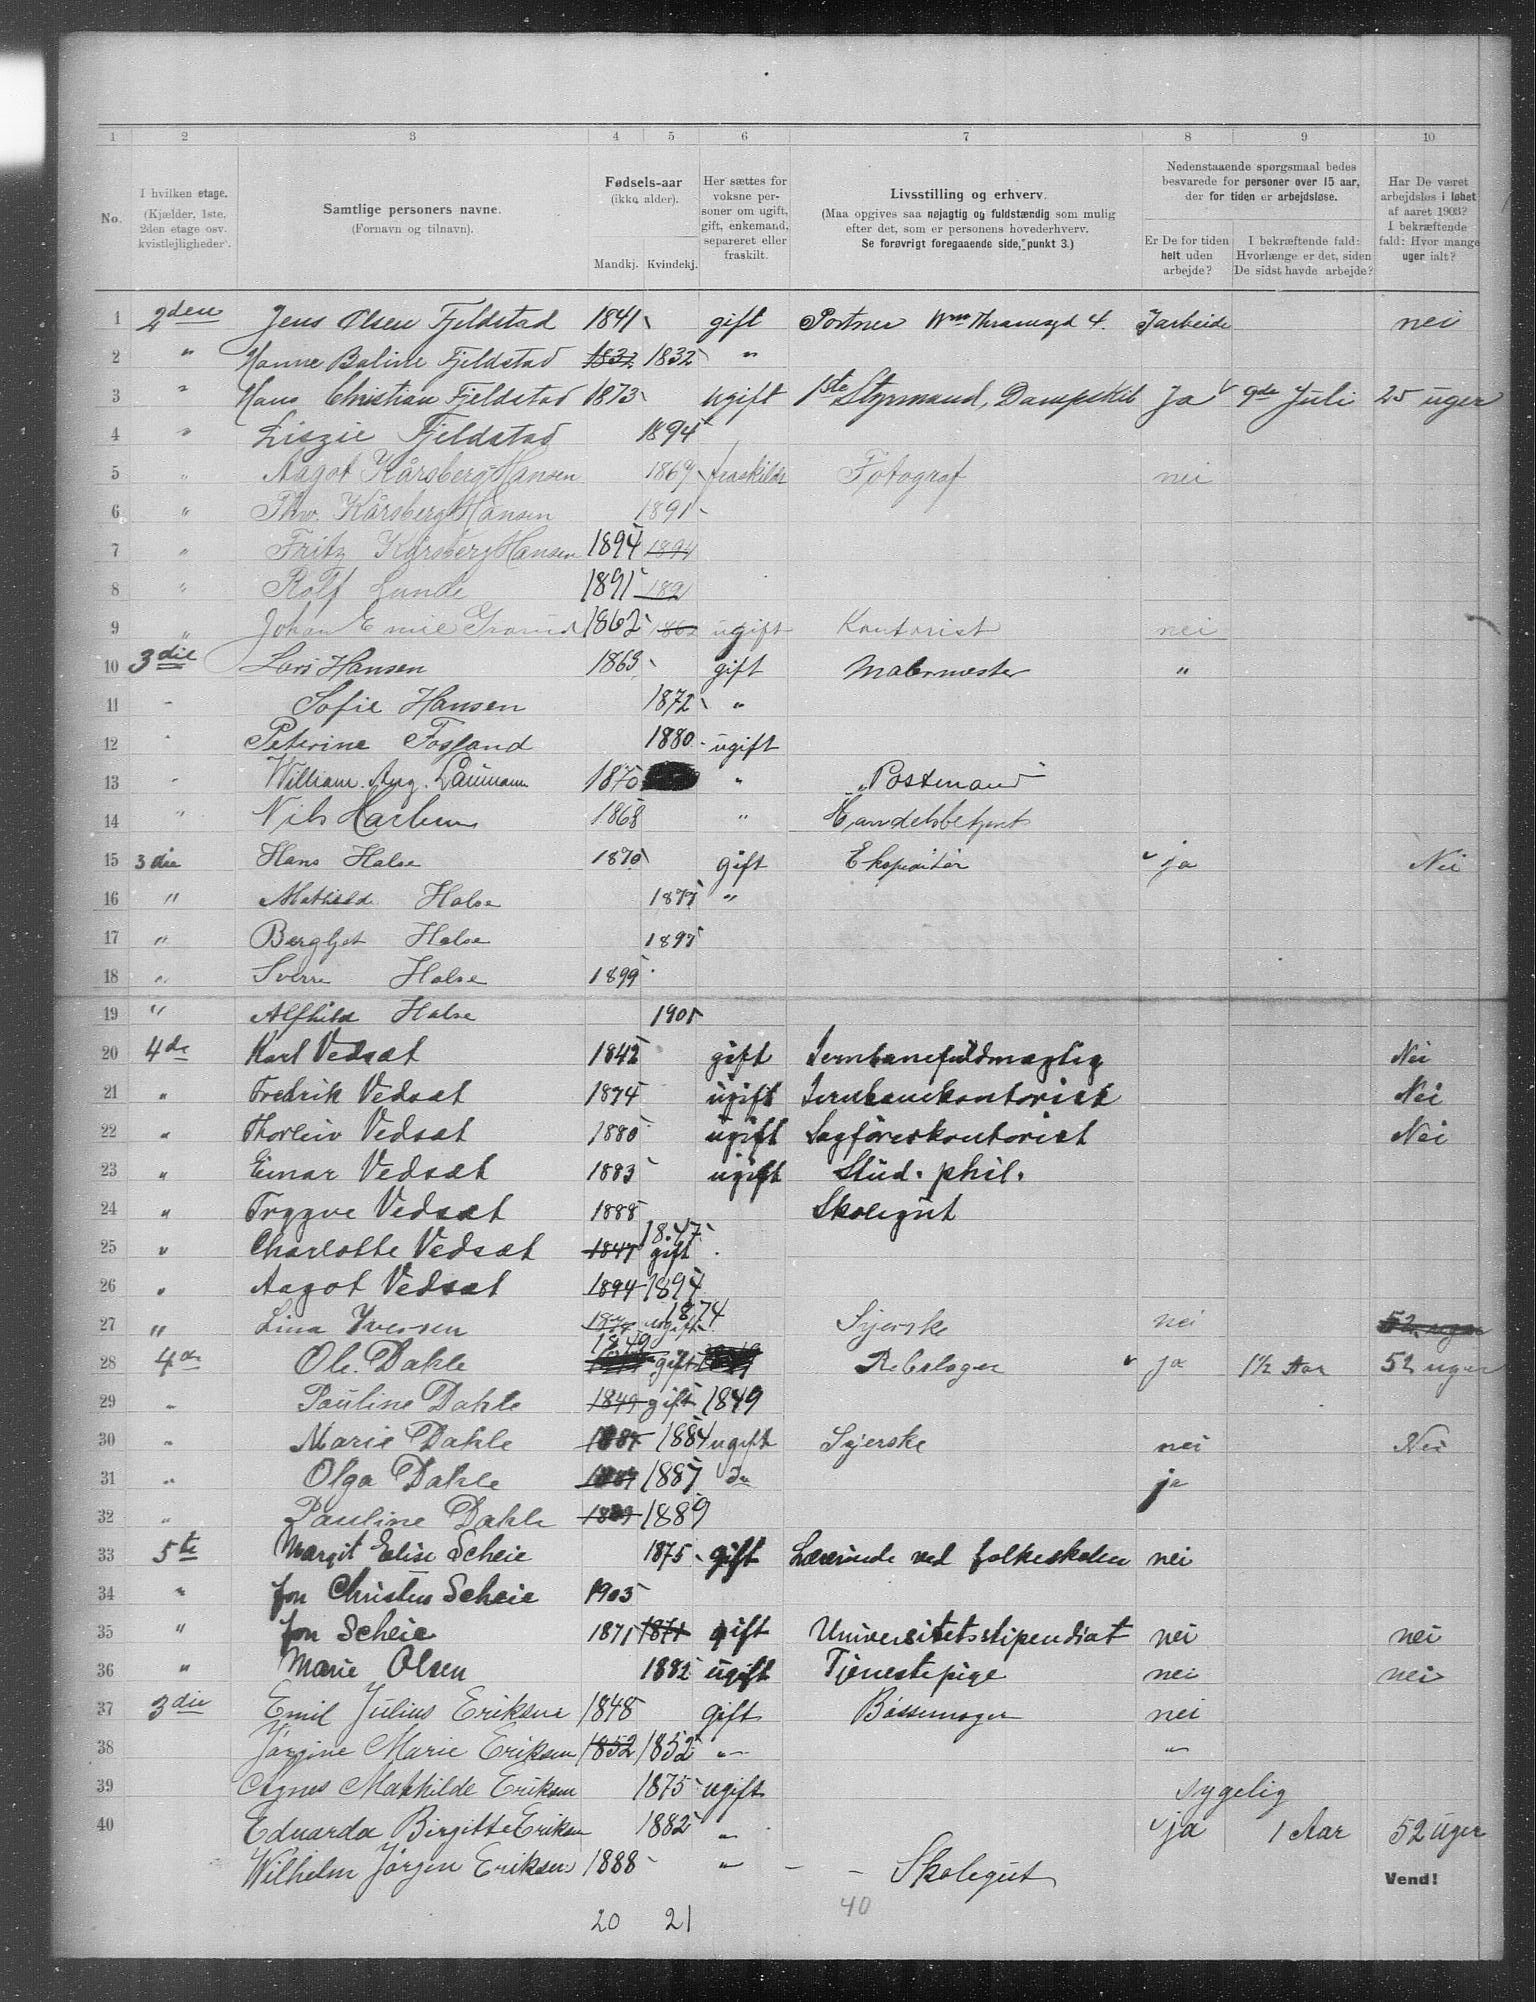 1 2 3 4 5 6 7 8 9 10
No. | I hvilken etage. (Kjælder, 1ste, 2den etage osv. kvistleiligheder). | Samtlige personers navne. (Fornavn og tilnavn). | Fødsels-aar (ikke alder). Mandkj. Kvindekj. | Her sættes for voksne personer om ugift, gift, enkemand, separeret eller fraskilt. | Livsstilling og erhverv. (Maa opgives saa nøjagtig og fuldstændig som mulig efter det, som er personens hovederhverv. Se forøvrigt foregaaende side, punkt 3.) | Nedenstaaende spørgsmaal bedes besvarede for personer over 15 aar, der for tiden er arbejdsløse. Er De for tiden helt uden arbejde? | I bekræftende fald: Hvorlænge er det, siden De sidst havde arbejde? | Har De været arbejdsløs i løbet af aaret 1903? I bekræftende fald: Hvor mange uger ialt?
1 2den Jens Olsen Fjeldstad 1841 gift Portner Thranesgd 4. I arbeide nei
2 " Hanne Baline Fjeldstad 1832 1832 "
3 " Hans Christian Fjeldstad 1873 ugift 1ste Styrmand, Dampskib Ja 9de Juli 25 uger
4 " Liszie Fjeldstad 1894
5 " Aagot Kårsberg Hansen 1869 fraskildt Fotograf nei
6 " Kårsberg Hansen 1891
7 " Fritz Kårsberg Hansen 1894 1894
8 " Rolf Lunde 1891 1891
9 " Johan Emil 1862 1862 ugift Kontorist nei
10 3die Lars Hansen 1863 gift Malermester "
11 " Sofie Hansen 1872 "
12 " Peterine Fossland 1880 ugift
13 " William Aug. Laumann 1870 " Postmand
14 " Nils 1868 " Handelsbetjent
15 3die Hans Halse 1870 gift Ekspeditør ja Nei
16 " Mathild Halse 1877 "
17 " Bergljot Halse 1897
18 " Sverre Halse 1899
19 " Alfhild Halse 1901
20 4de Karl Vedsæt 1842 gift Jernbanefuldmægtig Nei
21 " Fredrik Vedsæt 1874 ugift Jernbanekontorist Nei
22 " Thorleiv Vedsæt 1880 ugift Sagføreskontorist Nei
23 " Einar Vedsæt 1883 ugift Stud. phil.
24 " Trygve Vedsæt 1888 Skolegut
25 " Charlotte Vedsæt 1847 1847 gift
26 " Aagot Vedsæt 1894 1894
27 " Lina Iversen 1874 1874 ugift Syerske nei 52 uger
28 4de Ole Dahle 1849 gift Rebslager ja 1½ Aar 52 uger
29 " Pauline Dahle 1849 gift 1849
30 " Marie Dahle 1884 1884 ugift Syerske nei Nei
31 " Olga Dahle 1887 1887 do ja
32 " Pauline Dahle 1889 1889
33 5te Margit Elise Scheie 1875 gift Lærerinde ved folkeskolen nei
34 " Jon Christen Scheie 1903
35 " Jon Scheie 1871 1871 gift Universitetsstipendiat nei nei
36 " Marie Olsen 1882 ugift Tjenestepige nei nei
37 3die Emil Julius Eriksen 1848 gift Bøssemager nei
38 Jørgine Marie Eriksen 1852 1852 " "
39 Agnes Mathilde Eriksen 1875 ugift sygelig
40 Eduarda Birgitte Eriksen 1882 " ja 1 Aar 52 uger
Wilhelm Jørgen Eriksen 1888 " Skolegut
Vend!
20 21 40